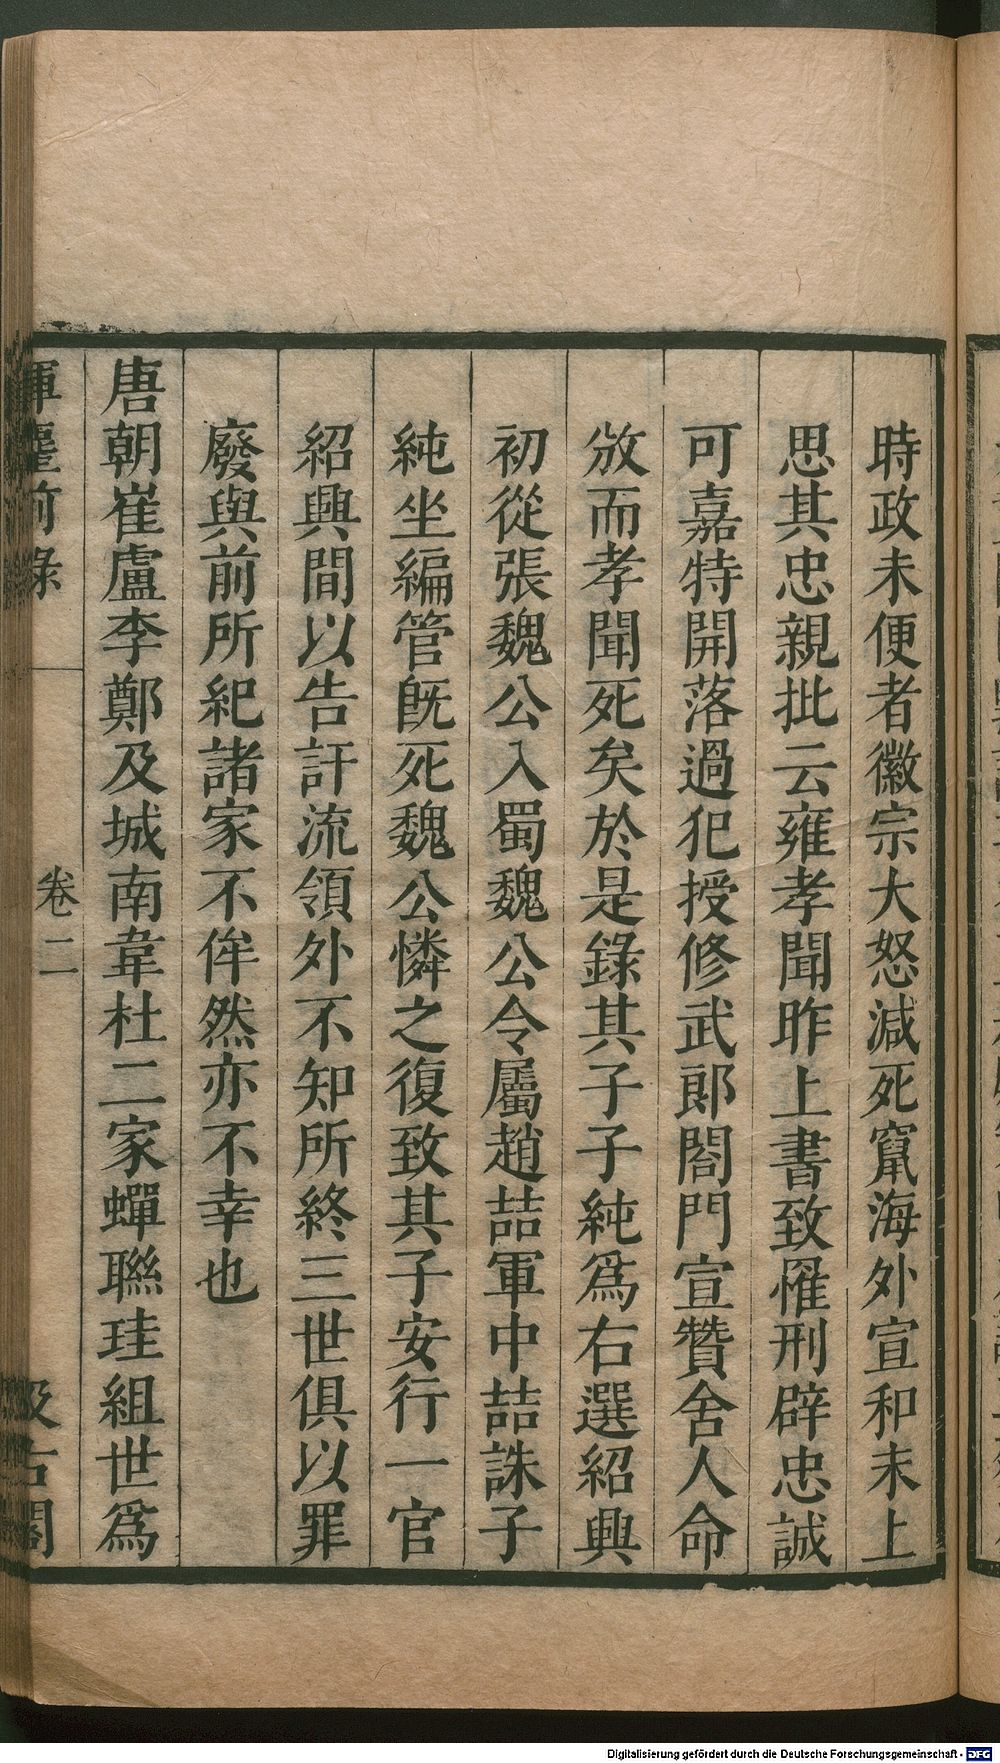 時政未便者徽宗大怒減死竄海外宣和末上
思其忠親批云雍孝聞昨上書致罹刑辟忠誠
可嘉特開落過犯授修武郎閤門宣贊舍人命
放而孝聞死矣於是錄其子子純爲右選紹興
初從張魏公入蜀魏公令屬趙喆軍中喆誅子
純坐編管旣死魏公憐之復致其子安行一官
紹興間以告訐流領外不知所終三世俱以罪
廢與前所紀諸家不侔然亦不幸也
唐朝崔盧李鄭及城南韋杜二家蟬聯珪組世爲
揮麈前錄 卷二 汲古閣
Digitalisierung gefördert durch die Deutsche Forschungsgemeinschaft - DFG